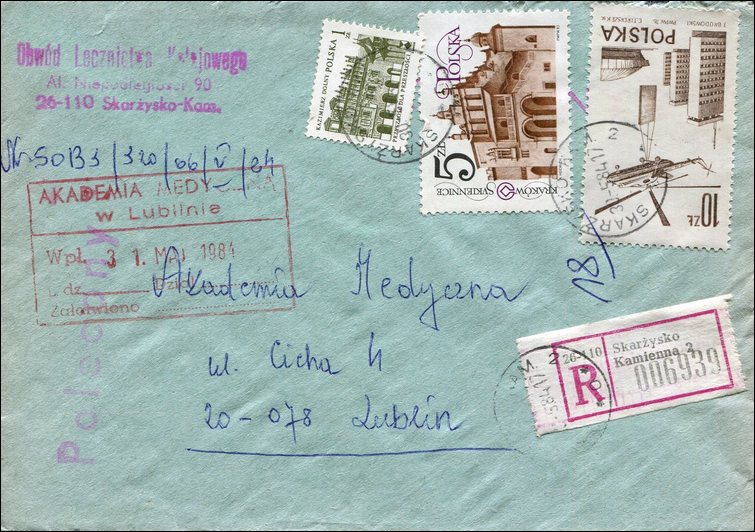 Obwód Lecznictwa Kolejowego
Al. Niepodległości 90
26-110 Skarżysko-Kam.
Nr SOB3/320/66/V/84
KAZIMIERZ DOLNY POLSKA 1 ZŁ
PRZESZŁOŚĆ DLA PRZYSZŁOŚCI
POLSKA
5 ZŁ
KRAKÓW
SUKIENNICE
POLSKA
10 ZŁ
SKARŻ
2
SKARŻ
AKADEMIA MEDYCZNA
w Lublinie
Wpł. 31. MAJ 1984
L. dz. Dział
Załatwiono
Polecony
Akademia Medyczna
ul. Cicha 4
20-078 Lublin
18/
R
26-110
Skarżysko
Kamienna 2
006939
KAM 2